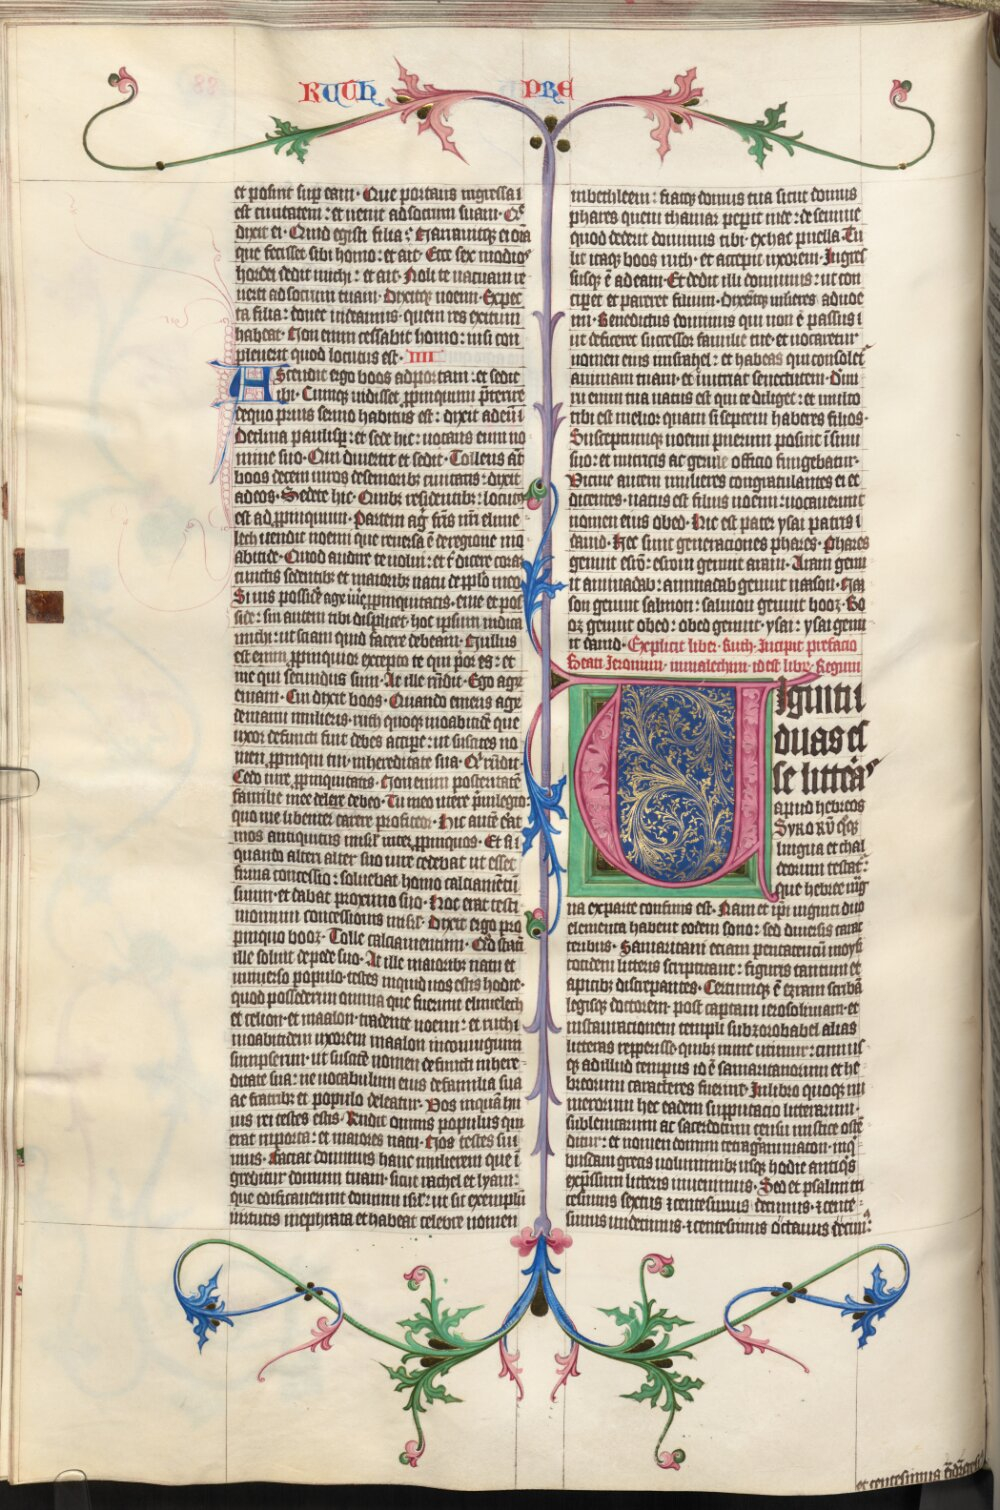 RUTH PRE
et possint sup eam. Que portans ingressa
est ciuitatem: et uenit ad socrum suam. Q̄
dixit ei. Quid egisti filia? Narrauitqʒ ei oīa
que fecisset sibi homo: et ait. Ecce sex modios
hordei dedit michi: et ait. Nolo te uacuam re
uerti ad socrum tuam. Dixitqʒ noemi. Expec
ta filia: donec uideamus quem res exitum
habeat. Non enim cessabit homo: nisi con
pleuerit quod locutus est. IIII
Ascendit ergo boos ad portam: et sedit
ibi. Cumqʒ uidisset ꝓpinquum p̄terire
de quo prius sermo habitus est: dixit ad eum
Declina paulisꝑ: et sede hic: uocans eum no
mine suo. Qui diuertit et sedit. Tollens aūt
boos decem uiros de senioribꝫ ciuitatis: dixit
ad eos. Sedete hic. Quibꝫ residentibꝫ: locutus
est ad ꝓpinquum. Partem agri fr̄is nr̄i elime
lech uendit noemi que reuersa ē de regione mo
abitide. Quod audire te uolui: et t̄ dicere coram
cunctis sedentibꝫ et maioribꝫ natu de pp̄lo meo
Si uis possidē age iure ꝓpinquitatis. eme et pos
side: sin autem tibi displicet. hoc ipsum indica
michi: ut sciam quid facere debeam. Nullus
est enim ꝓpinquior excepto te qui prior es: et
me qui secundus sum. At ille rn̄dit. Ego agrū
emam. Cui dixit boos. Quando emeris agrū
de manu mulieris. ruth quoqʒ moabitidē que
uxor defuncti fuit debes accipe: ut suscites no
men ꝓpinqui tui in hereditate sua. Q̄ rn̄dit.
Cedo iure ꝓpinquitatis. Non enim posteritatē
familie mee delere debeo. Tu meo utere priuilegio
quo me libenter carere profiteor. Hic autē erat
mos antiquitus in isrl̄ inter ꝓpinquos. Et si
quando alteri alter suo iure cedebat ut esset
firma concessio: soluebat homo calciamētū
suum. et dabat proximo suo. Hoc erat testi
monium concessionis in isrl̄. Dixit ergo pro
pinquo booz. Tolle calciamentum. Qd̄ statī
ille soluit de pede suo. At ille maioribꝫ natu et
uniuerso populo. testes inquid uos estis hodie.
quod possederim omnia que fuerunt elimelech
et celion et maalon. tradente noemi: et ruth
moabitidem uxorem maalon in coniugium
sumpserim. ut suscitē nomen defuncti in here
ditate sua: ne uocabulum eius de familia sua
ac fratribꝫ et populo deleatur. Vos inquā hu
ius rei testes estis. Rndit omnis populus qui
erat in porta: et maiores natu. Nos testes su
mus. Faciat dominus hanc mulierem que ī
greditur domum tuam. sicut rachel et lyam:
que edificauerunt domum isrl̄: ut sit exemplū
uirtutis in ephrata et habeat celebre nomen
in bethleem: fiatqʒ domus tua sicut domus
phares quem thamar peperit iude: de semine
quod dederit dominus tibi. ex hac puella. Tu
lit itaqʒ boos ruth. et accepit uxorem. Ingres
susqʒ ē ad eam. Et dedit illi dominus: ut con
ciperet et pareret filium. Dixerūtqʒ mulieres ad noe
mi. Benedictus dominus qui non ē passus
ut deficeret successor familie tue. et uocaretur
nomen eius in israhel: et habeas qui consolet̄
animam tuam. et enutriat senectutem. De nu
ru enim tua natus est qui te diliget: et multo
tibi est melior quam si septem haberes filios.
Susceptumqʒ noemi puerum posuit ī sinu
suo: et nutricis ac gerule officio fungebatur.
Vicine autem mulieres congratulantes ei et
dicentes. natus est filius noemi: uocauerunt
nomen eius obed. Hic est pater ysai patris
dauid. Hec sunt generaciones phares. Phares
genuit esrō: esrom genuit aram. Aram genu
it aminadab: aminadab genuit nason. Na
son genuit salmon: salmon genuit booz. Bo
oz genuit obed: obed genuit. ysai: ysai genu
it dauid. Explicit liber Ruth. Incipit prefacio
Beati Jeronimi. in malachim. id est libr̄ Regum
Uiginti
duas es
se litteras
apud hebreos
SYRORŪ qʒ
lingua et chal
deorum testat̄:
que hebree mag
na ex parte confinis est. Nam et ip̄i uiginti duo
elementa habent eodem sono: sed diuersis carac
teribus. Samaritani eciam pentateucū moysi
totidem litteris scriptitant: figuris tantum et
apicibꝫ discrepantes. Certumqʒ ē ezram scribā
legisqʒ doctorem. post captam ierosolimam. et
instauracionem templi sub zorobabel alias
litteras repperisse. quibꝫ nunc utimur: cum us
qʒ ad illud tempus idē samaritanorum et he
breorum caracteres fuerint. In libro quoqʒ nu
merorum hec eadem supputacio litterarum.
sub leuitarum ac sacerdotum censu mistice ostē
ditur: et nomen domini tetragramaton. in qui
busdam grecis uoluminibꝫ usqʒ hodie antiquis
expressum litteris inuenimus. Sed et psalmi tri
cesimus sextus ⁊ centesimus decimus. ⁊ cente
simus undecimus. ⁊ centesimus octauus decim
et centesimus